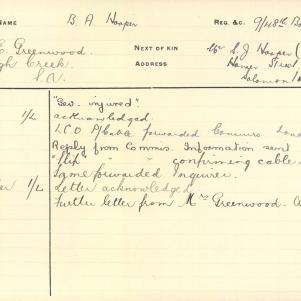 NAME B. A. Hooper REG. &c. 9/48th Ba
E. Greenwood. NEXT OF KIN Mr S. J. Hooper (
gh Creek. ADDRESS Homer Street,
S.A. Solomon
"Sev. injured".
1/2 acknowledged
L C O P/Cable forwarded Commrs Lond
Reply from Commis. Information sent
"flip" " " confirming cable
Same forwarded inquirer.
er 1/2 Letter acknowledged
Further letter from Mrs Greenwood.